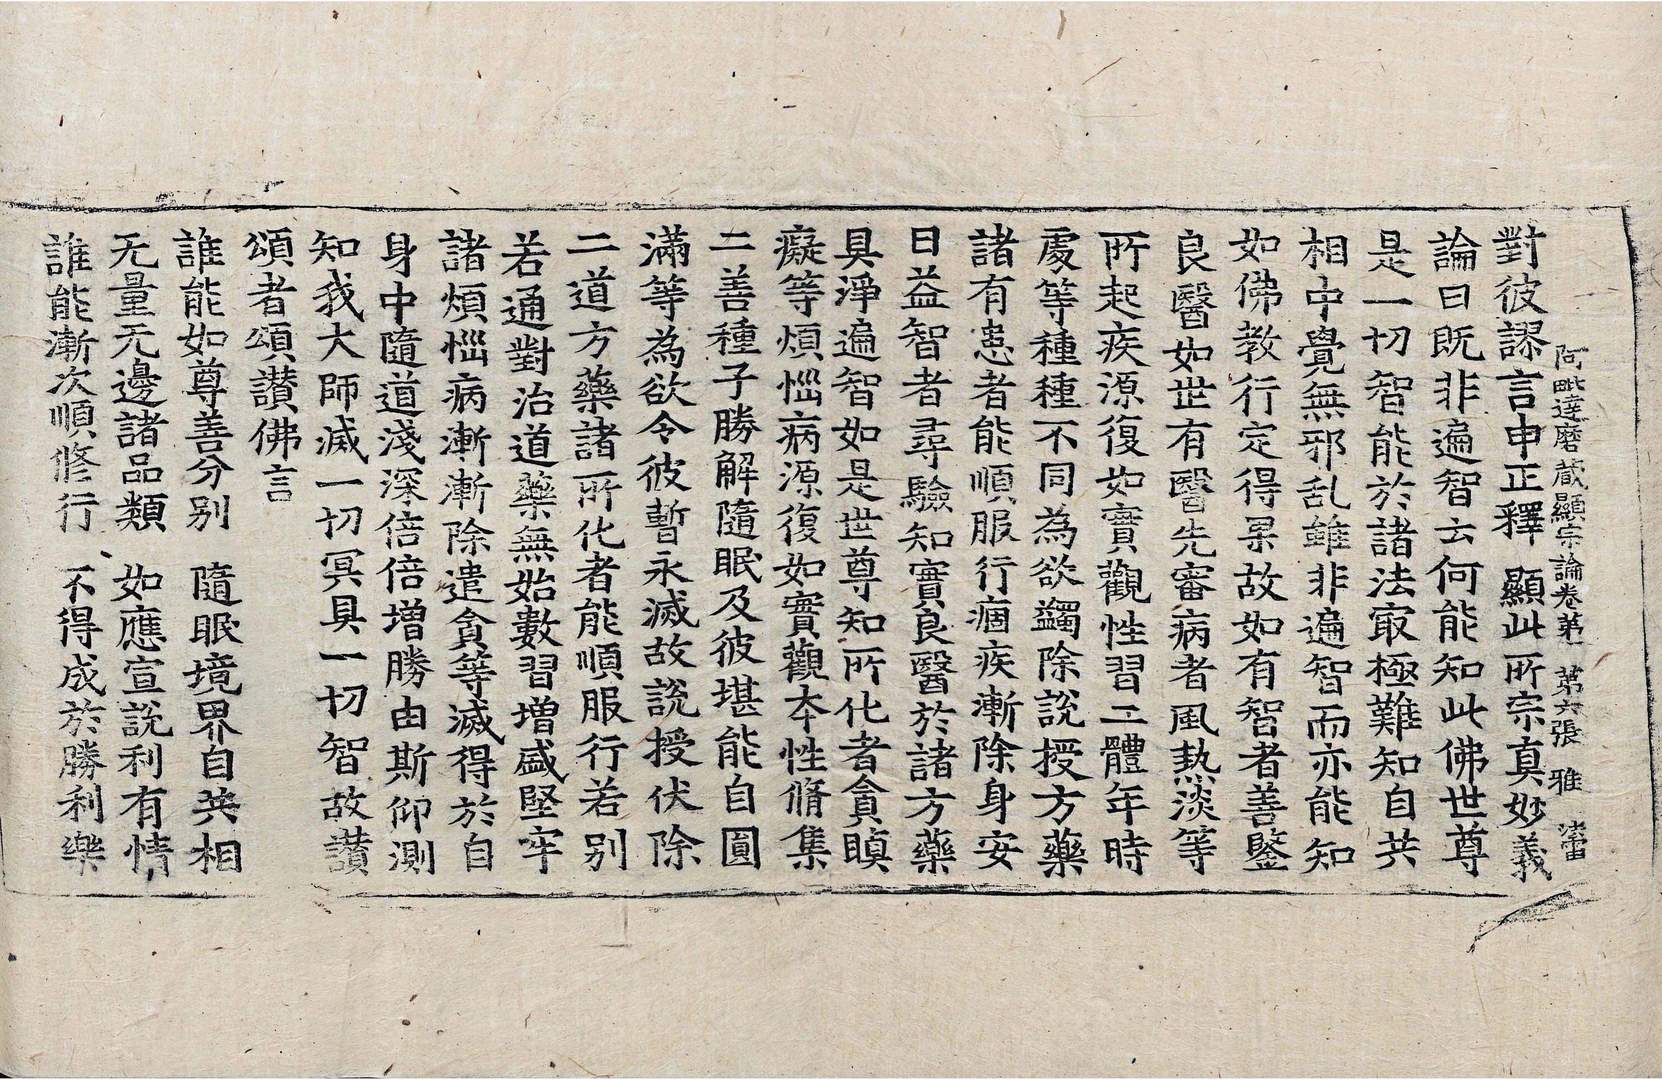 阿毗達磨藏顯宗論卷第一 第六張 雅
對彼謬言申正釋 顯此所宗真妙義
論曰既非遍智云何能知此佛世尊
是一切智能於諸法㝡極難知自共
相中覺無邪乱雖非遍智而亦能知
如佛教行定得果故如有智者善鑒
良醫如世有醫先審病者風熱淡等
所起疾源復如實觀性習二體年時
處等種種不同為欲蠲除說授方藥
諸有患者能順服行痼疾漸除身安
日益智者尋驗知實良醫於諸方藥
具淨遍智如是世尊知所化者貪瞋
癡等煩惱病源復如實觀本性脩集
二善種子勝解隨眠及彼堪能自圓
滿等為欲令彼暫永滅故說授伏除
二道方藥諸所化者能順服行若別
若通對治道藥無始數習增盛堅牢
諸煩惱病漸漸除遣貪等滅得於自
身中隨道淺深倍倍增勝由斯仰測
知我大師滅一切冥具一切智故讚
頌者頌讚佛言
誰能如尊善分別 隨眠境界自共相
无量无邊諸品類 如應宣說利有情
誰能漸次順脩行 不得成於勝利樂